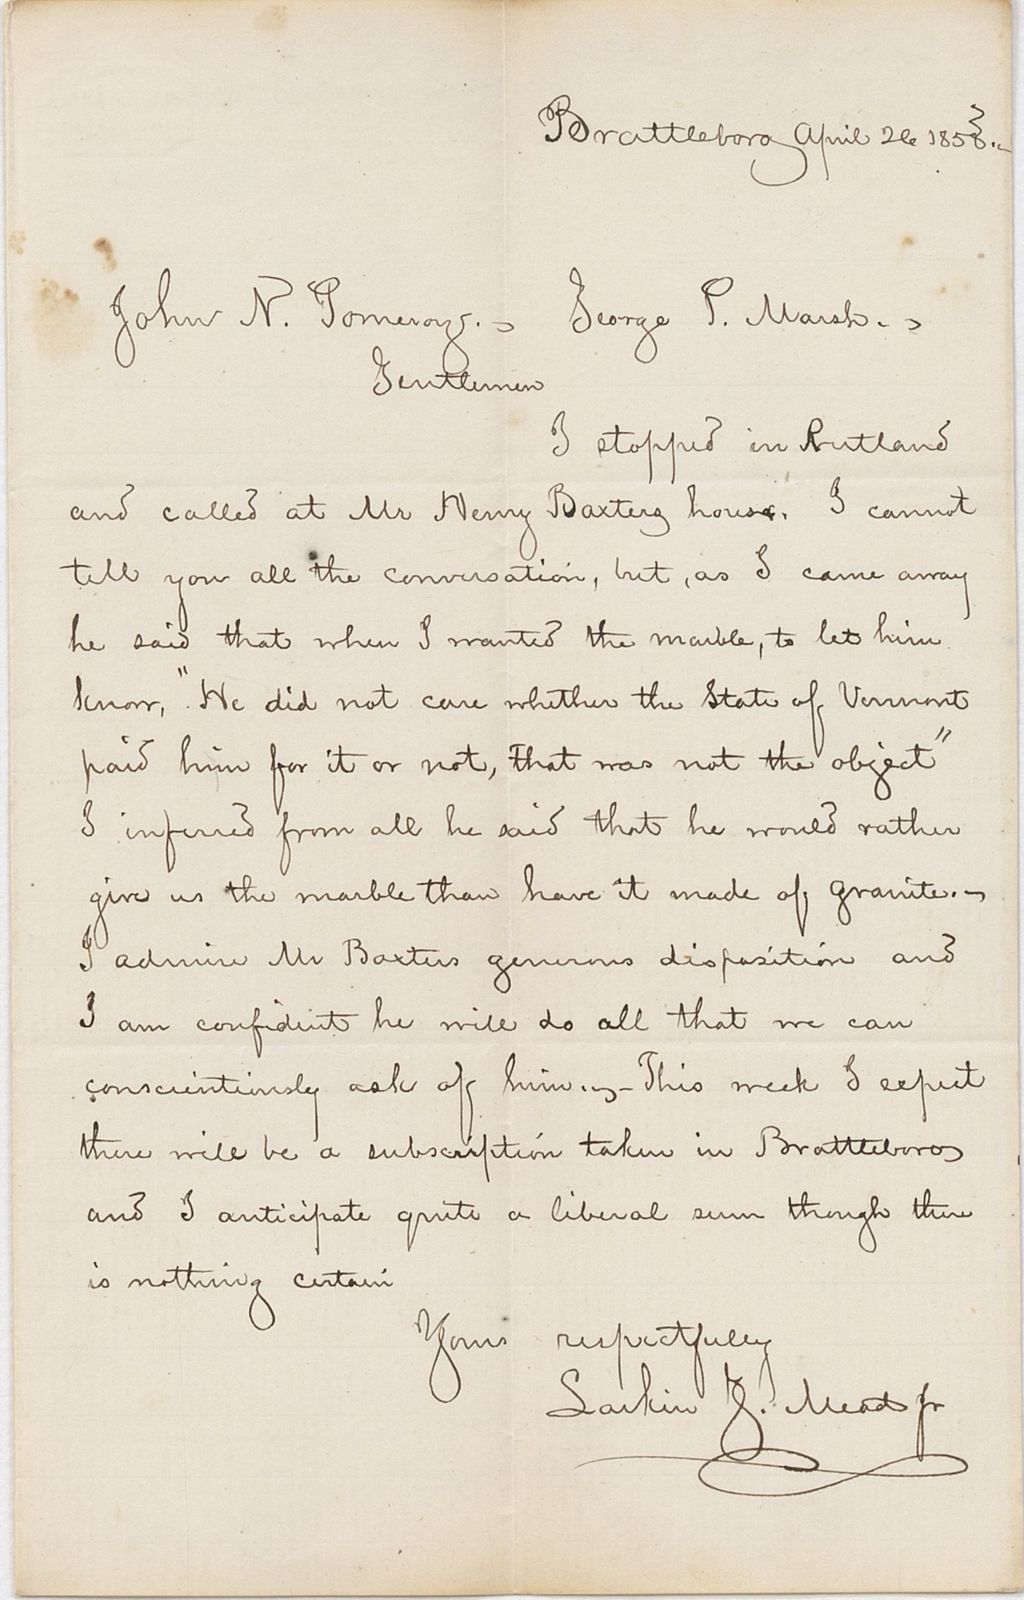 Brattleboro April 26 1858.
John N. Pomeroy. George P. Marsh.
Gentlemen
I stopped in Rutland
and called at Mr Henry Baxters house. I cannot
tell you all the conversation, but, as I came away
he said that when I wanted the marble, to let him
know, "He did not care whether the State of Vermont
paid him for it or not, That was not the object"
I inferred from all he said that he would rather
give us the marble than have it made of granite.
I admire Mr Baxters generous disposition and
I am confident he will do all that we can
conscientiously ask of him. This week I expect
there will be a subscription taken in Brattleboro
and I anticipate quite a liberal sum though there
is nothing certain
Yours respectfully
Larkin G. Mead Jr